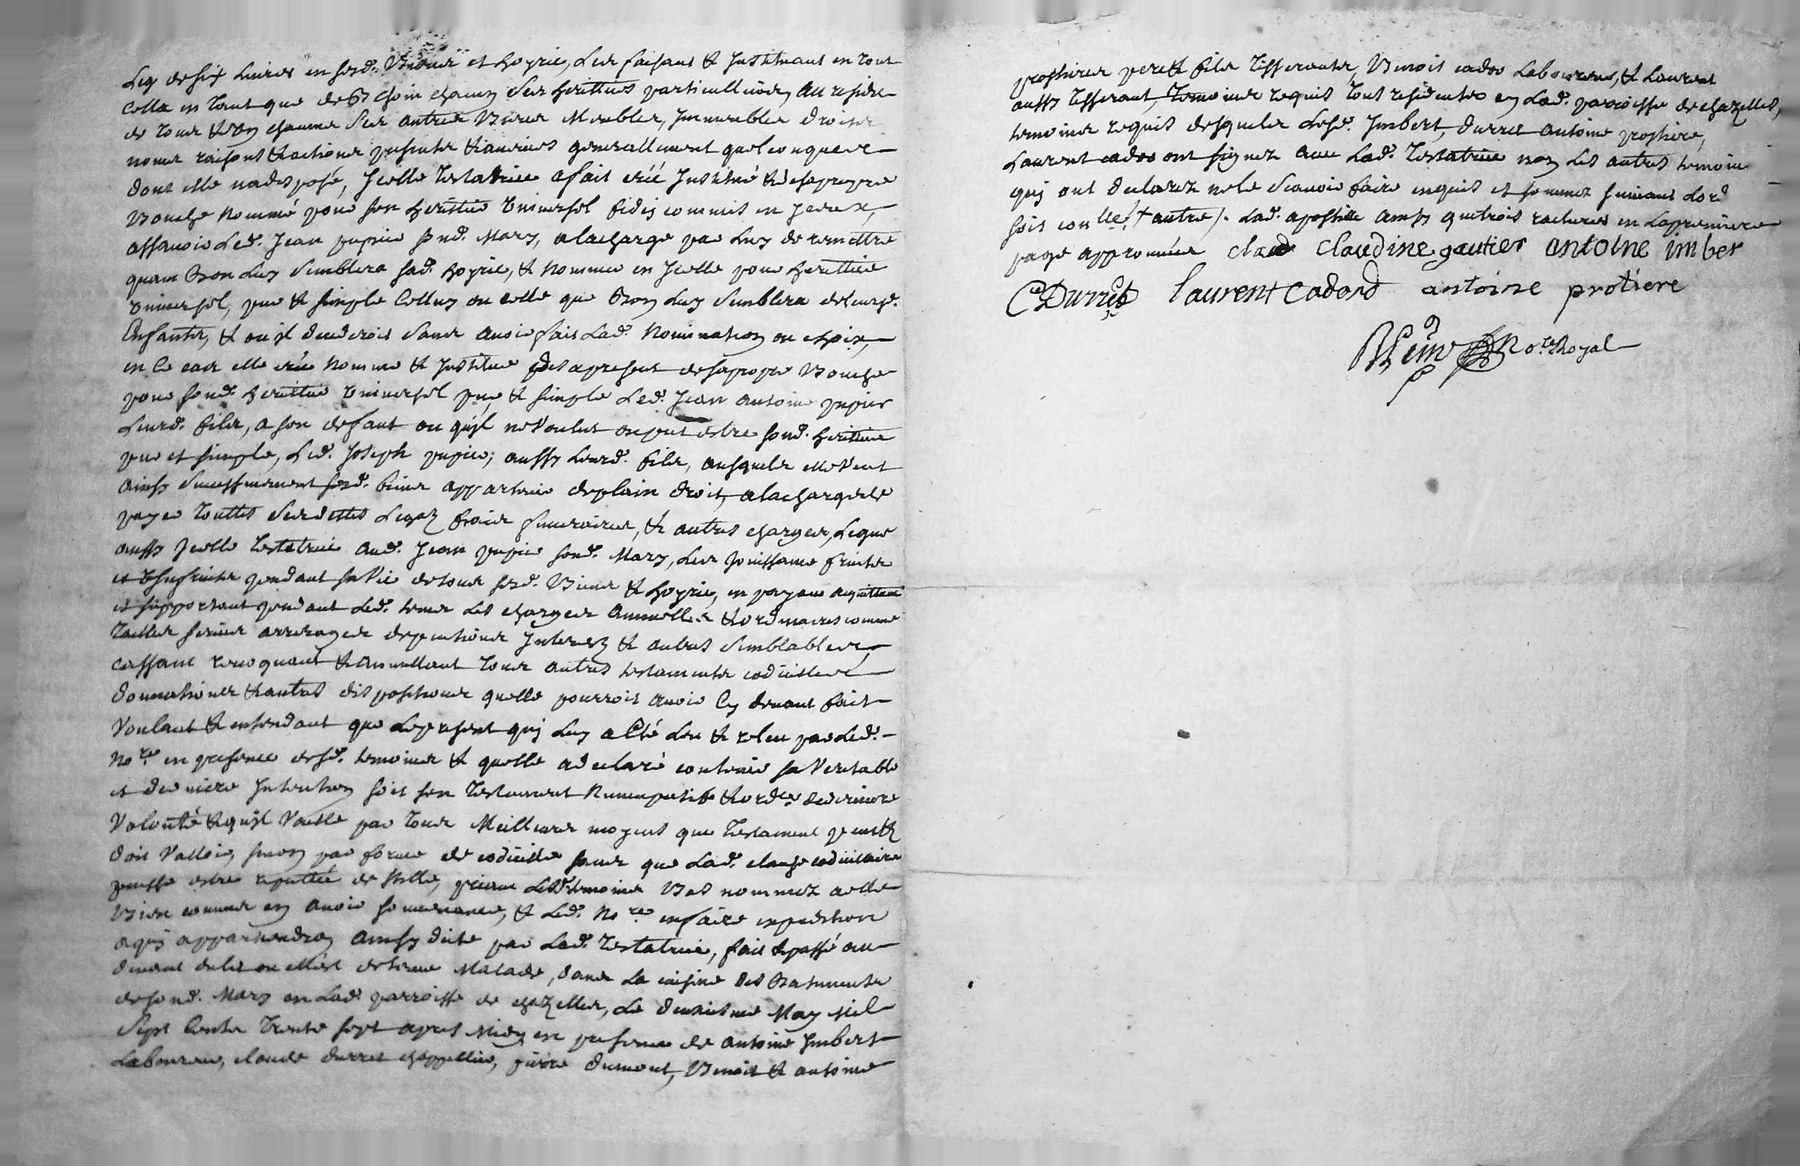 Leg de six livres en sesd. Biens et hoyrie, Les faisant & Instituant en tout
Cella en tant que de besoin chacun ses heritiers particulliers, Au residu
de tous & un chacuns ses autres Biens Meubles, Immeubles droits
noms raisons & actions presents & advenirs generallement quelconques
dont elle na disposé, Icelle testatrice a fait créé Institué & de sa propre
Bouche Nommé pour son heritier universel fideicommis en Iceux,
assavoir Led. Jean pupier sond. Mary, a la charge par Luy de remettre
quant Bon Luy semblera sad. hoyrie, & nommer en Icelle pour heritier
universel, pur & simple Celluy ou celle que Bon Luy semblera de leursd.
Enfants, & ou il decederoit sans avoir fait Lad. Nomination ou choix,
en Ce cas elle crée Nomme & Institue des a present de sa propre Bouche
pour sond. heritier universel pur & simple Led. Jean antoine pupier
Leurd. fils, a son defaut ou qu'il ne voulut ou put estre sond. heritier
pur et simple, Led. Joseph pupier; aussy Leurd. fils, ausquels elle veut
ainsy successivement sesd. biens appartenir de plain droit, a la charge de
payer touttes ses dettes Legaz frais funeraires, & autres charges, Legue
aussy Icelle testatrice aud. Jean pupier sond. Mary, Les Jouissance fruits
et usufruits pendant sa vie de tous sesd. Biens & hoyrie, en payant acquittant
et supportant pendant Led. temps Les charges annuelles & ordinaires comme
tailles servis arrerages de pentions Interests & autres semblables,
cassant revoquant & annullant tous autres testaments codicilles
donnations & autres dispositions quelle pourroit avoir Cy devant fait
Voulant & entendant que Le present quj Luy a été Leu & releu par Led.
No.re en presence desd. temoins & quelle a declaré contenir sa veritable
et derniere Intention soit son testament Nuncupatif & ord.ce de derniere
Volonté & quil vaille par tous Meilleurs moyens que testament peut &
doit valloir, sinon par forme de codicille sans que Lad. clause codicillaire
puisse estre reputtée de stille, priant Lesd. temoins Bas nommez a elle
Bien connus en avoir souvenance, & Led. No.re en faire expedition
a quj appartiendra, ainsy dicté par Lad. testatrice, fait & passé au
devant du lit ou elle est detenue Malade, dans La cuisine des Batiments
de sond. Mary en Lad. parroisse de chazelles, Le deuxieme May Mil
Sept Cents trente sept apres Midy en presence de antoine Imbert
Laboureur, claude durret chappellier, pierre dumont, Benoit & antoine
prothiere pere & fils tisserants, Benoit cador Laboureur, & Laurent
aussy tisserant, temoins requis tous residents en Lad. parroisse de chazelles,
temoins requis desquels Lesd. Imbert, durret antoine prothiere,
Laurent cador ont signez avec Lad. testatrice non Les autres temoins
quj ont declarez ne le scavoir faire enquis et sommez suivant Lord
soit con.lle / + autre /. Lad. apostille ainsy que trois ratures en La premiere
page approuvées claud claudine gautier antoine imber
C Durret laurent cadord antoine protiere
No.re Royal